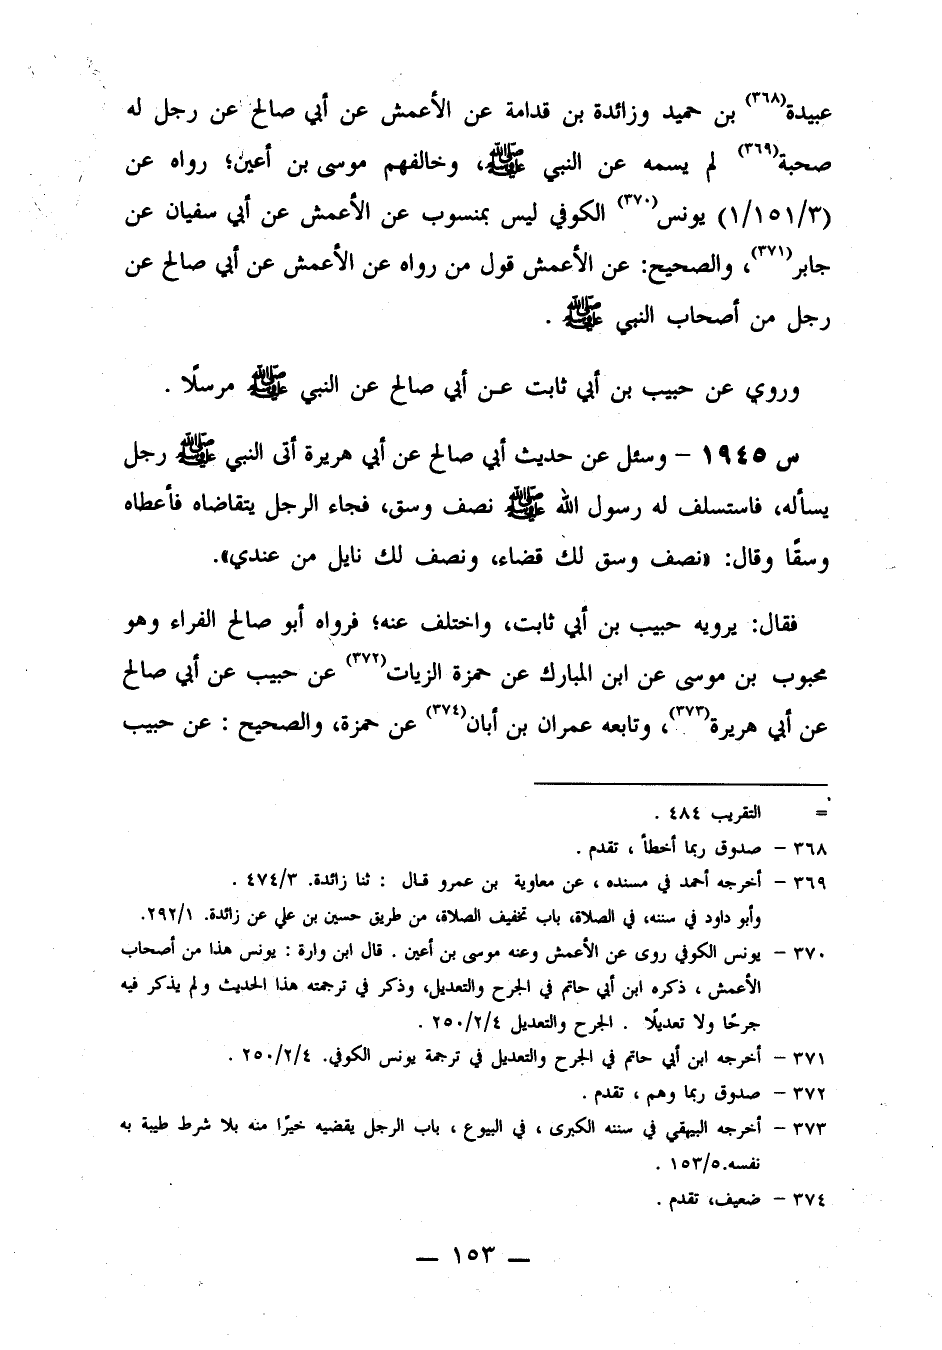 عبيدة(٣٦٨) بن حميد وزائدة بن قدامة عن الأعمش عن أبي صالح عن رجل له
صحبة(٣٦٩) لم يسمه عن النبي ﷺ، وخالفهم موسى بن أعين؛ رواه عن
(١/١٥١/٣) يونس(٣٧٠) الكوفي ليس بمنسوب عن الأعمش عن أبي سفيان عن
جابر(٣٧١)، والصحيح: عن الأعمش قول من رواه عن الأعمش عن أبي صالح عن
رجل من أصحاب النبي ﷺ .
وروي عن حبيب بن أبي ثابت عـن أبي صالح عن النبي ﷺ مرسلًا .
س ١٩٤٥ – وسئل عن حديث أبي صالح عن أبي هريرة أتى النبي ﷺ رجل
يسأله، فاستسلف له رسول الله ﷺ نصف وسق، فجاء الرجل يتقاضاه فأعطاه
وسقًا وقال: «نصف وسق لك قضاء، ونصف لك نايل من عندي».
فقال: يرويه حبيب بن أبي ثابت، واختلف عنه؛ فرواه أبو صالح الفراء وهو
محبوب بن موسى عن ابن المبارك عن حمزة الزيات(٣٧٢) عن حبيب عن أبي صالح
عن أبي هريرة(٣٧٣)، وتابعه عمران بن أبان(٣٧٤) عن حمزة، والصحيح : عن حبيب
= التقريب ٤٨٤ .
٣٦٨ – صدوق ربما أخطأ ، تقدم .
٣٦٩ – أخرجه أحمد في مسنده ، عن معاوية بن عمرو قـال : ثنا زائدة. ٤٧٤/٣ .
وأبو داود في سننه، في الصلاة، باب تخفيف الصلاة، من طريق حسين بن علي عن زائدة. ٢٩٢/١.
٣٧٠ – يونس الكوفي روى عن الأعمش وعنه موسى بن أعين . قال ابن وارة : يونس هذا من أصحاب
الأعمش ، ذكره ابن أبي حاتم في الجرح والتعديل، وذكر في ترجمته هذا الحديث ولم يذكر فيه
جرحًا ولا تعديلًا . الجرح والتعديل ٢٥٠/٢/٤ .
٣٧١ – أخرجه ابن أبي حاتم في الجرح والتعديل في ترجمة يونس الكوفي. ٢٥٠/٢/٤ .
٣٧٢ – صدوق ربما وهم ، تقدم .
٣٧٣ – أخرجه البيهقي في سننه الكبرى ، في البيوع ، باب الرجل يقضيه خيرًا منه بلا شرط طيبة به
نفسه.١٥٣/٥ .
٣٧٤ – ضعيف، تقدم .
— ١٥٣ —